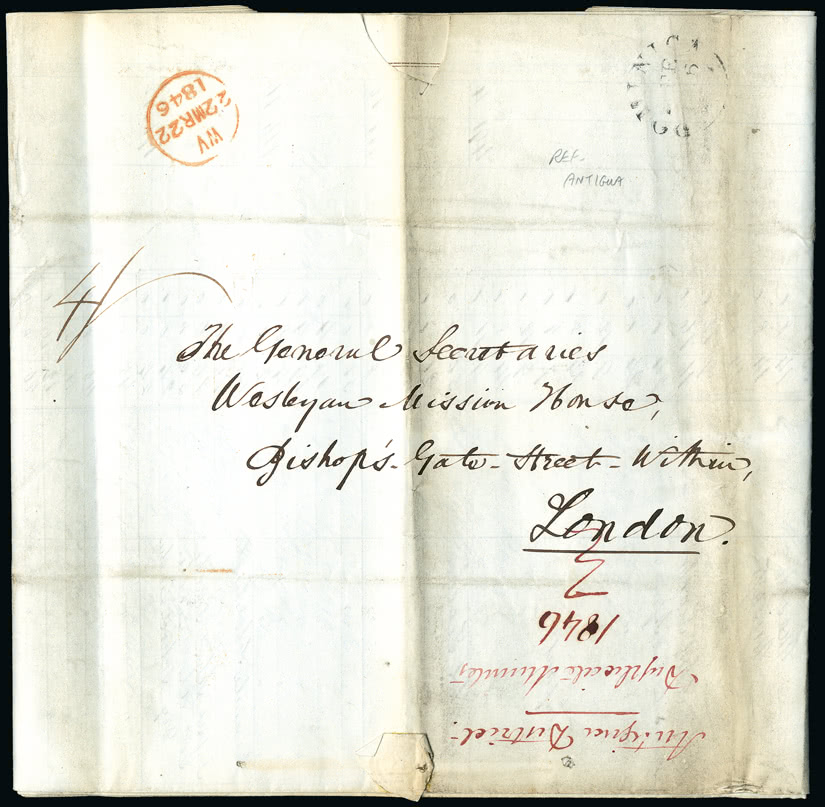 VV
22MR22
1846
REF.
ANTIGUA
4/
The General Secretaries
Wesleyan Mission House,
Bishop's-Gate-Street-Within,
London.
Antigua District.
Duplicate Minutes,
1846